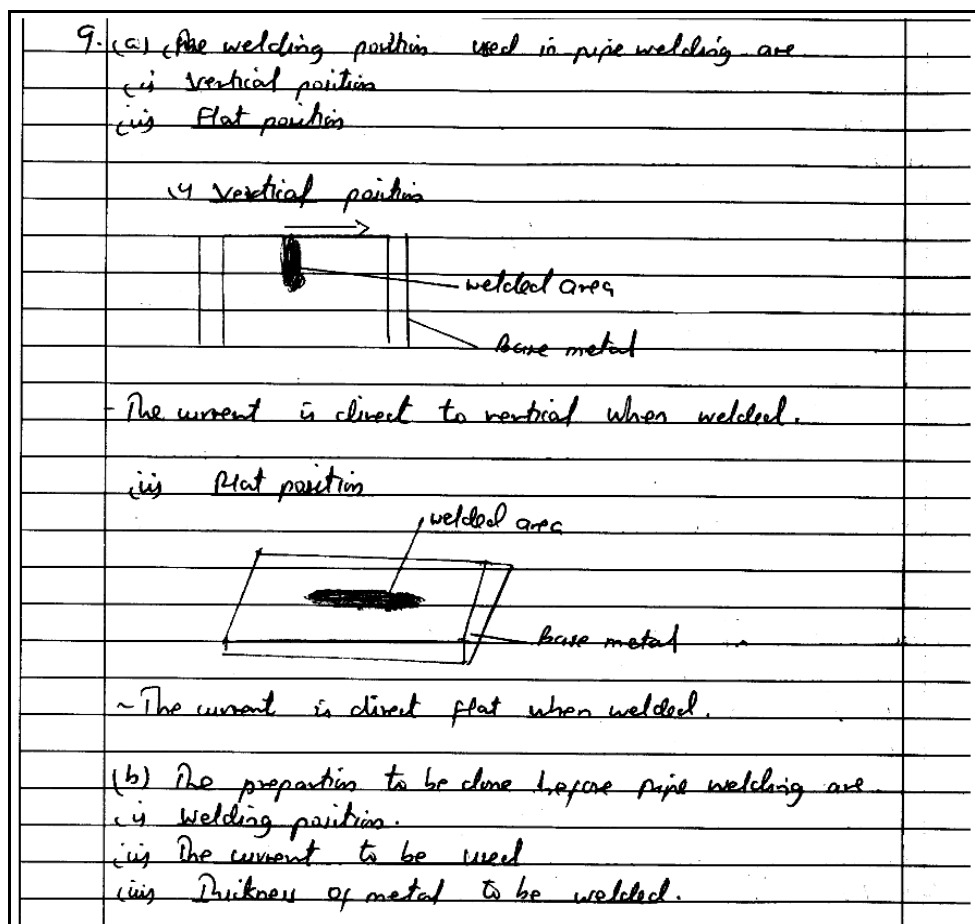 9. (a) The welding position used in pipe welding are
(i) Vertical position
(ii) Flat position
(i) Vertical position
welded area
Base metal
- The current is direct to vertical when welded.
(ii) Flat position
welded area
Base metal
- The current is direct flat when welded.
(b) The prepartion to be done before pipe welding are
(i) Welding position.
(ii) The current to be used
(iii) Thickness of metal to be welded.